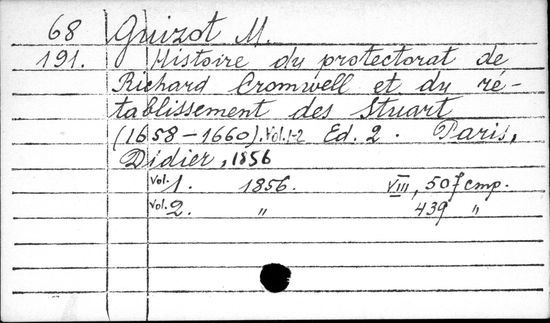 68 Guizot M.
191. Histoire du protectorat de
Richard Cromwell et du ré-
tablissement des Stuart
(1658-1660). Vol. 1-2 Ed. 2. Paris,
Didier, 1856
Vol. 1. 1856. VIII, 507 стр.
Vol. 2. " 439 "